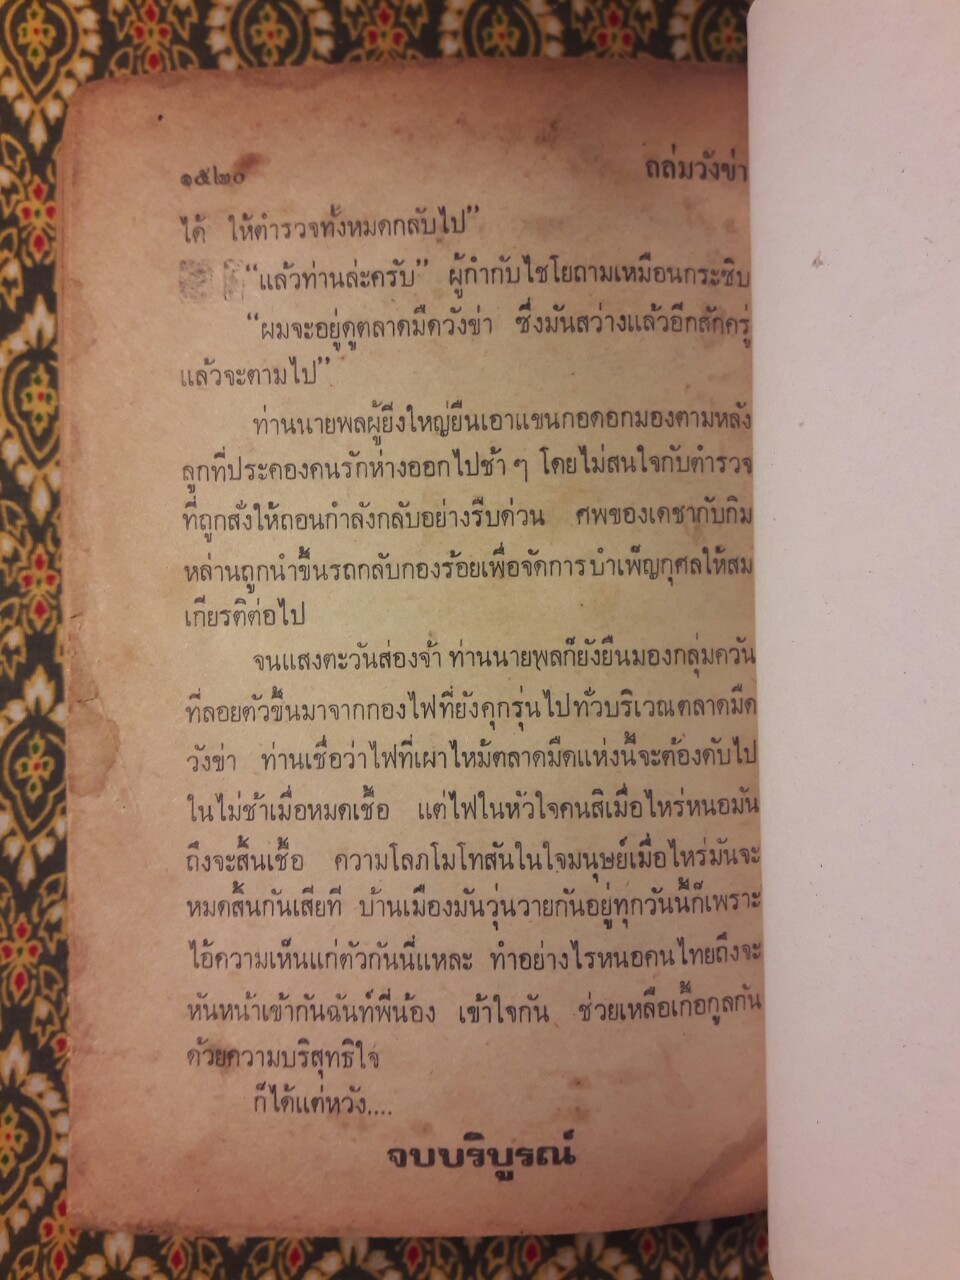 ๑๕๒๐ ถล่มวังข่า
ได้ ให้ตำรวจทั้งหมดกลับไป”
“แล้วท่านล่ะครับ” ผู้กำกับไชโยถามเหมือนกระซิบ
“ผมจะอยู่ดูตลาดมืดวังข่า ซึ่งมันสว่างแล้วอีกสักครู่
แล้วจะตามไป”
ท่านนายพลผู้ยิ่งใหญ่ยืนเอาแขนกอดอกมองตามหลัง
ลูกที่ประคองคนรักห่างออกไปช้า ๆ โดยไม่สนใจกับตำรวจ
ที่ถูกสั่งให้ถอนกำลังกลับอย่างรีบด่วน ศพของเดชากับกิม
หล่านถูกนำขึ้นรถกลับกองร้อยเพื่อจัดการบำเพ็ญกุศลให้สม
เกียรติต่อไป
จนแสงตะวันส่องจ้า ท่านนายพลก็ยังยืนมองกลุ่มควัน
ที่ลอยตัวขึ้นมาจากกองไฟที่ยังคุกรุ่นไปทั่วบริเวณตลาดมืด
วังข่า ท่านเชื่อว่าไฟที่เผาไหม้ตลาดมืดแห่งนี้จะต้องดับไป
ในไม่ช้าเมื่อหมดเชื้อ แต่ไฟในหัวใจคนสิเมื่อไหร่หนอมัน
ถึงจะสิ้นเชื้อ ความโลภโมโทสันในใจมนุษย์เมื่อไหร่มันจะ
หมดสิ้นกันเสียที บ้านเมืองมันวุ่นวายกันอยู่ทุกวันนี้ก็เพราะ
ไอ้ความเห็นแก่ตัวกันนี่แหละ ทำอย่างไรหนอคนไทยถึงจะ
หันหน้าเข้ากันฉันท์พี่น้อง เข้าใจกัน ช่วยเหลือเกื้อกูลกัน
ด้วยความบริสุทธิใจ
ก็ได้แต่หวัง....
จบบริบูรณ์